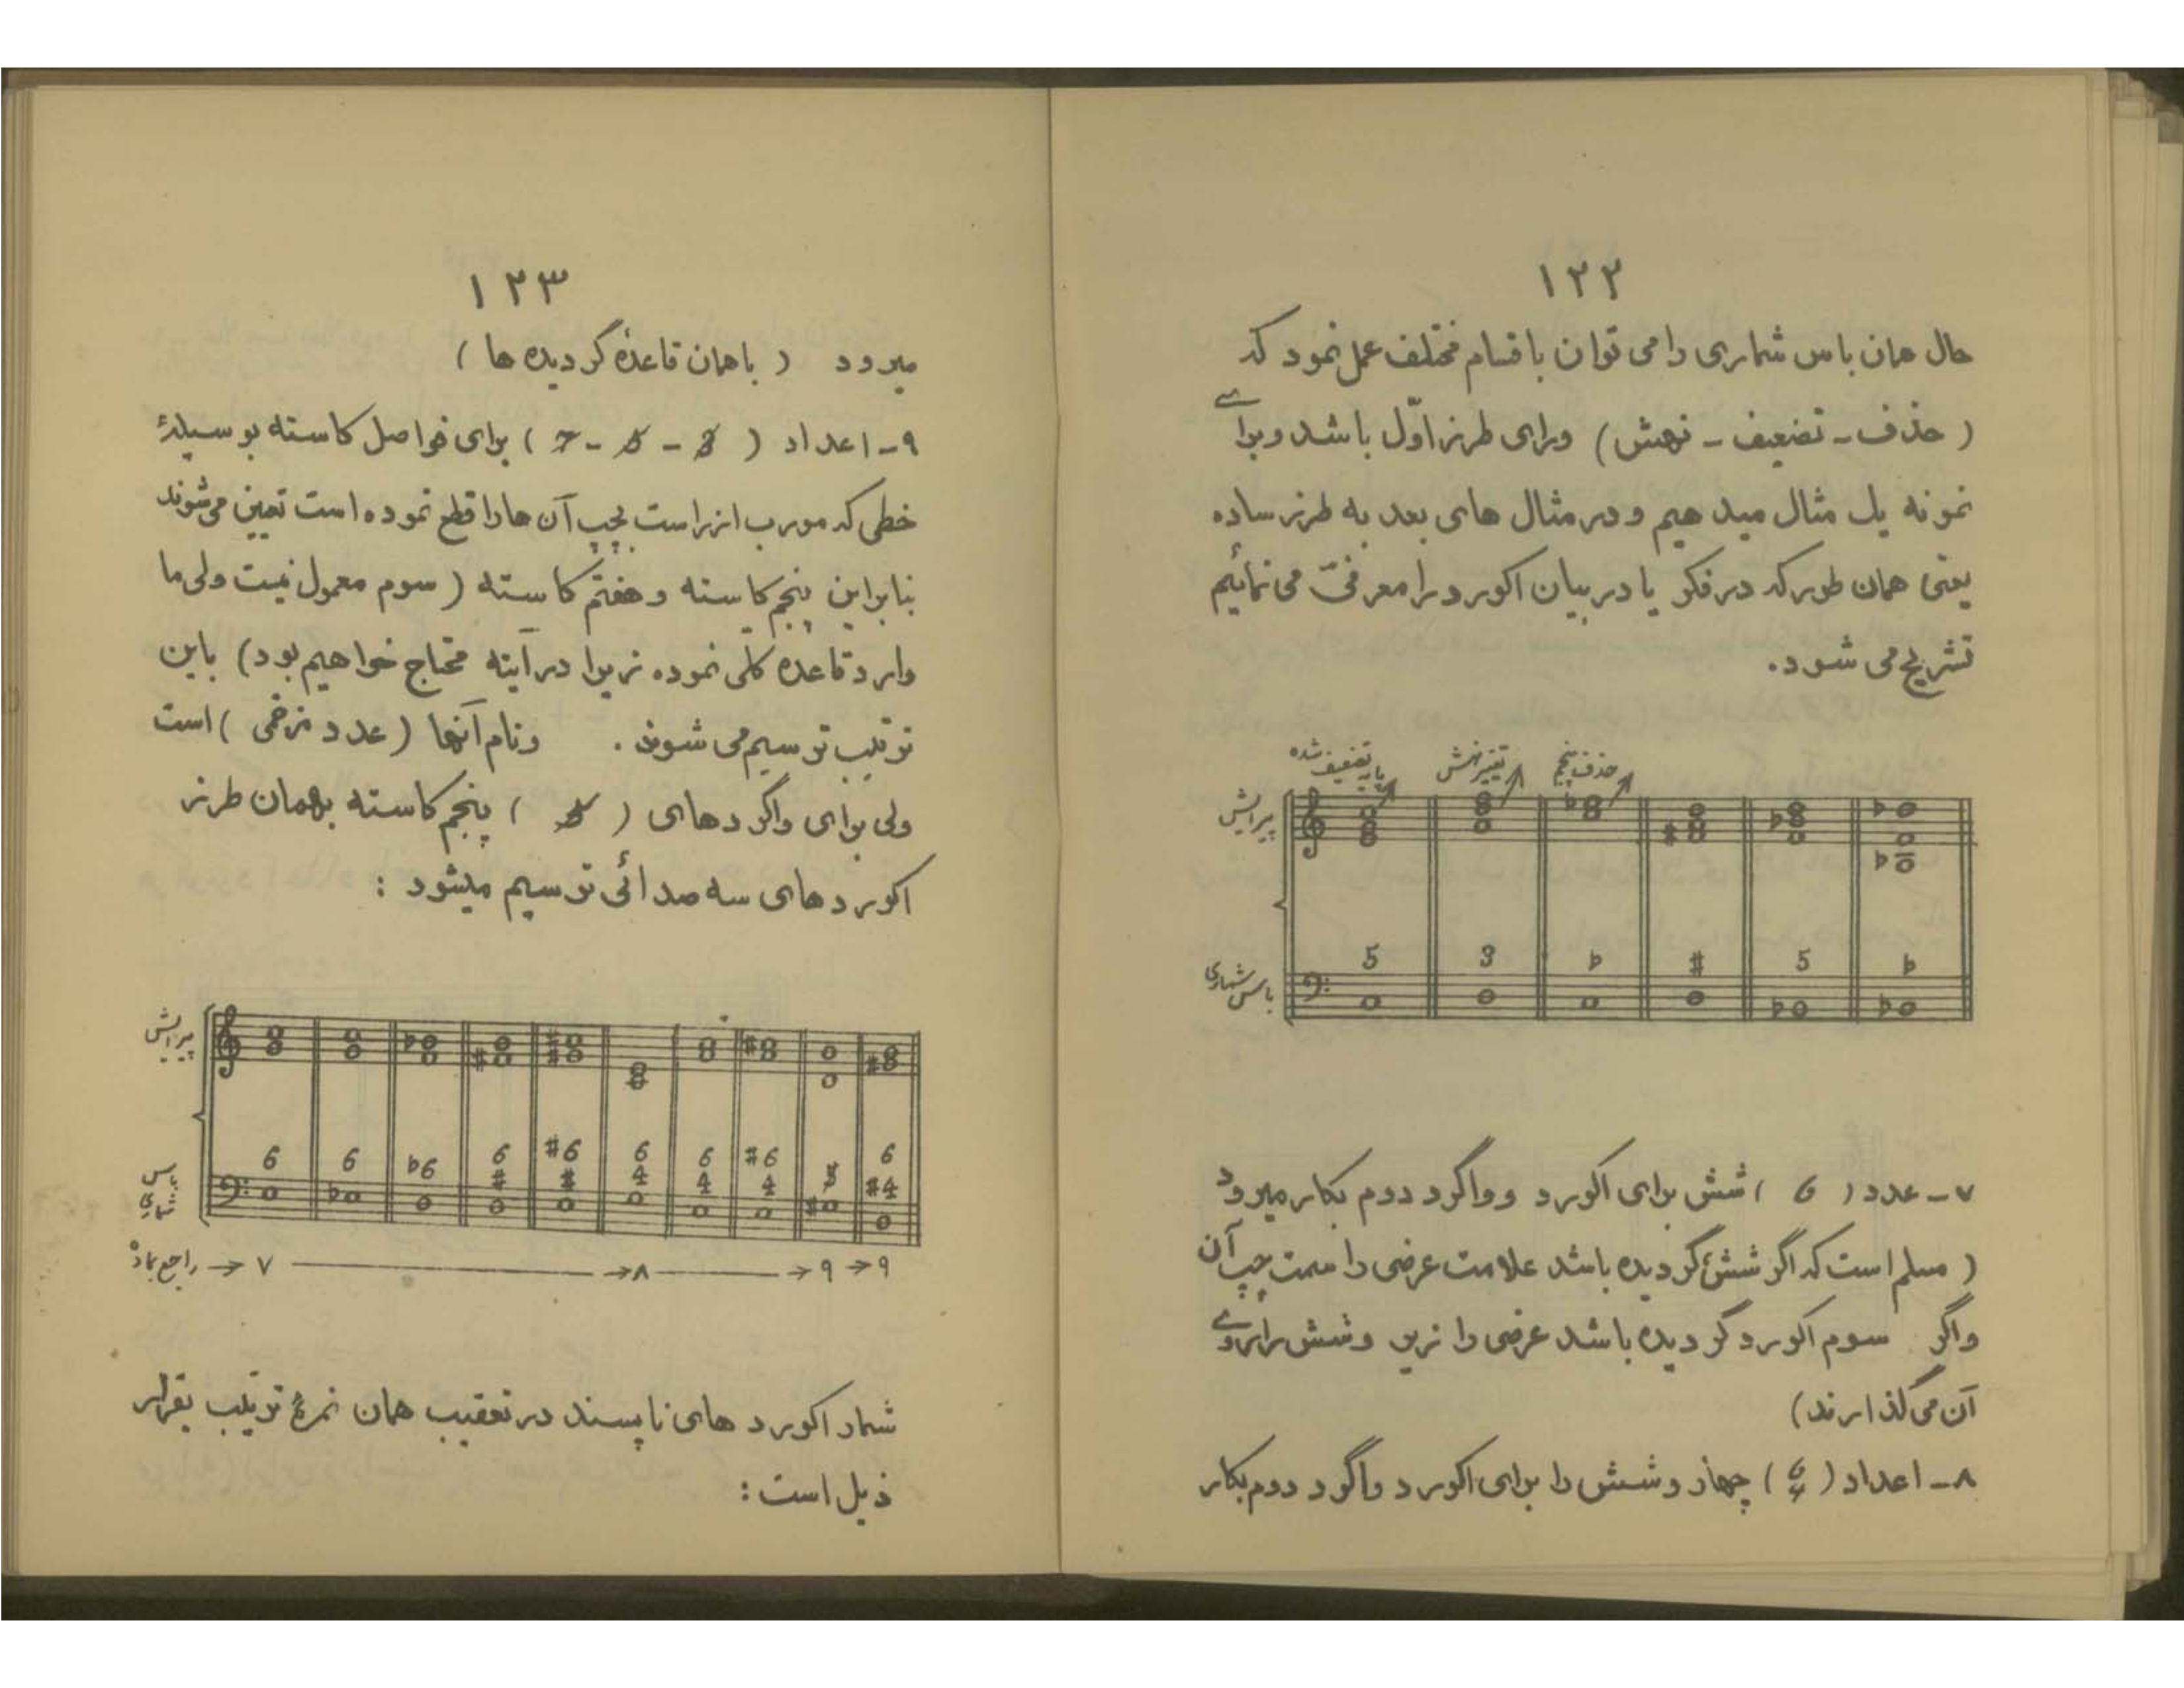 ۱۲۲
حال همان باس شماری را می توان باقسام مختلف عمل نمود که
( حذف - تضعیف - نهش ) ورای طرز اوّل باشد و برای
نمونه یک مثال میدهیم و در مثال های بعد به طرز ساده
یعنی همان طور که در فکر یا در بیان اکورد را معرفیّ می نمائیم
تشریح می شود.
پایه تضعیف شده
تغییر نهش
حذف پنجم
پیرایش
5 3 ♭ # 5 ♭
باس شماری
۷- عدد ( 6 ) شش برای اکورد و واگرد دوم بکار میرود
( مسلم است که اگر شش گردیده باشد علامت عرضی را سمت چپ آن
واگر سوم اکورد گردیده باشد عرضی را زیر و شش را بروی
آن می گذارند )
۸- اعداد ( 6 4 ) چهار و شش را برای اکورد واگرد دوم بکار
۱۲۳
میرود ( باهمان قاعدهٔ گردیده ها )
۹- اعداد ( 3 - 5 - 7 ) برای فواصل کاسته بوسیلهٔ
خطی که مورب از راست بچپ آن ها را قطع نموده است تعیین می شوند
بنابراین پنجم کاسته و هفتم کاسته ( سوم معمول نیست ولی ما
وارد قاعده کلی نموده زیرا در آیته محتاج خواهیم بود ) باین
ترتیب ترسیم می شوند . ونام آنها ( عدد زخمی ) است
ولی برای واگردهای ( 5 ) پنجم کاسته بهمان طرز
اکوردهای سه صدائی ترسیم میشود :
پیرایش
6 6 ♭6 6 # #6 # 6 4 6 4 #6 4 5 6 #4
باس شماری
راجع بمادهٔ → ۷ → ۸ → ۹ → ۹
شمار اکورد های ناپسند در تعقیب همان نمرهٔ ترتیب بقرار
ذیل است :